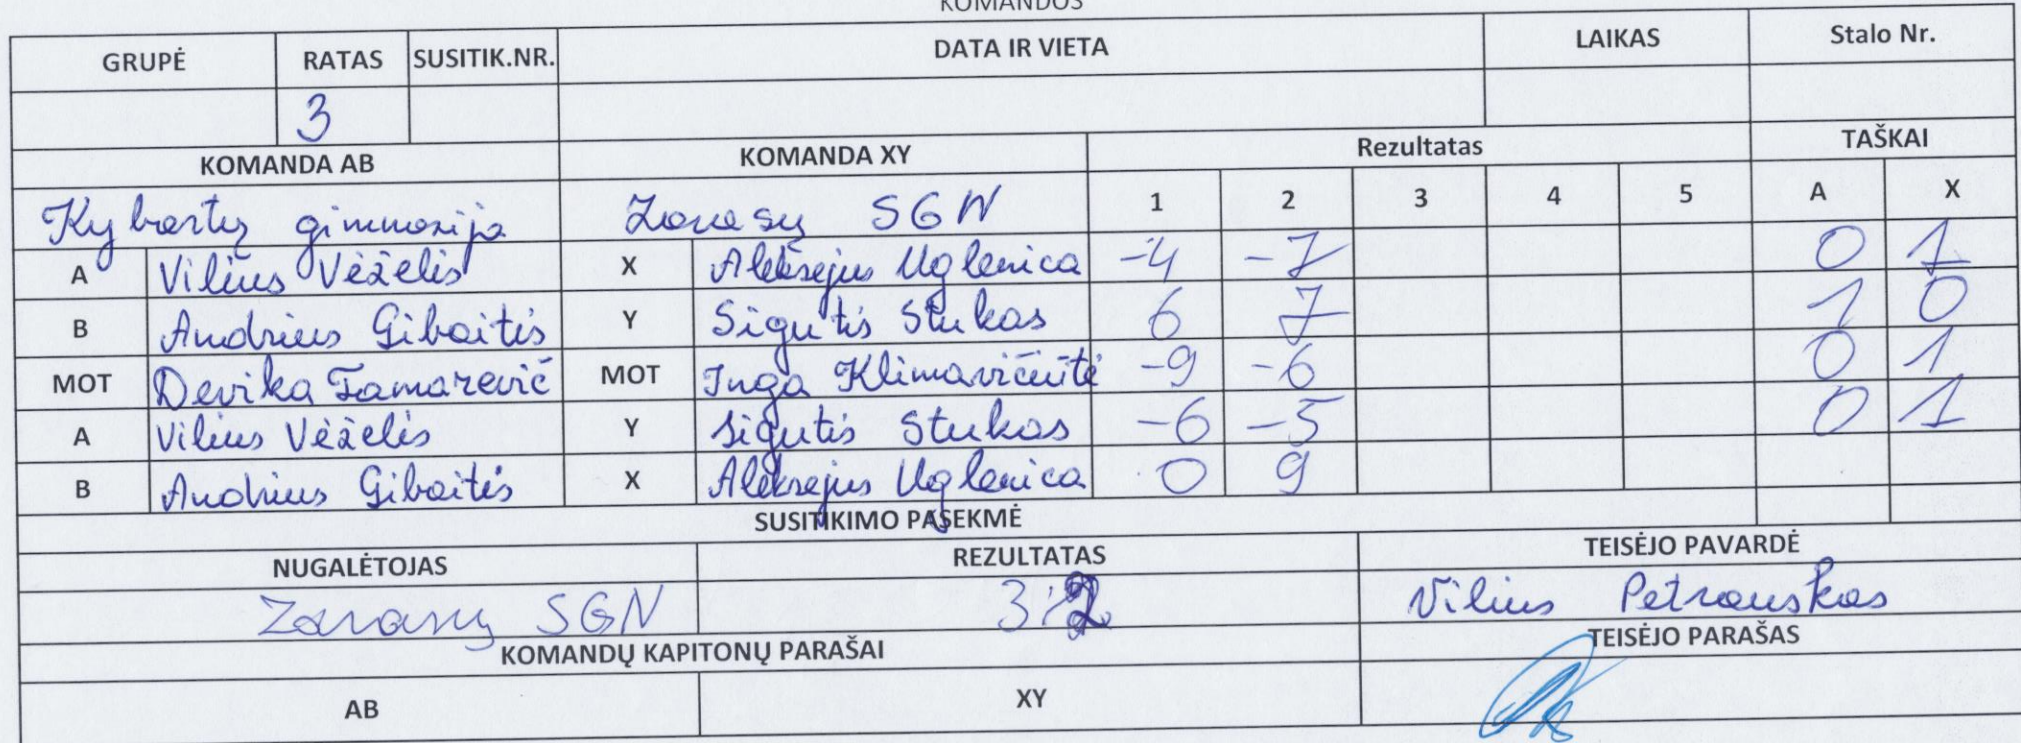 KOMANDOS
GRUPĖ RATAS SUSITIK.NR. DATA IR VIETA LAIKAS Stalo Nr.
3
KOMANDA AB KOMANDA XY Rezultatas TAŠKAI
Kybartų gimnazija Zarasų SGN 1 2 3 4 5 A X
A Vilius Vėželis X Aleksejus Uglenica -4 -7 0 1
B Andrius Gibaitis Y Sigutis Stukas 6 7 1 0
MOT Devika Tamarevič MOT Inga Klimavičiūtė -9 -6 0 1
A Vilius Vėželis Y Sigutis Stukas -6 -5 0 1
B Andrius Gibaitis X Aleksejus Uglenica 0 9
SUSITIKIMO PASEKMĖ
NUGALĖTOJAS REZULTATAS TEISĖJO PAVARDĖ
Zarasų SGN 3:2 Vilius Petrauskas
KOMANDŲ KAPITONŲ PARAŠAI TEISĖJO PARAŠAS
AB XY